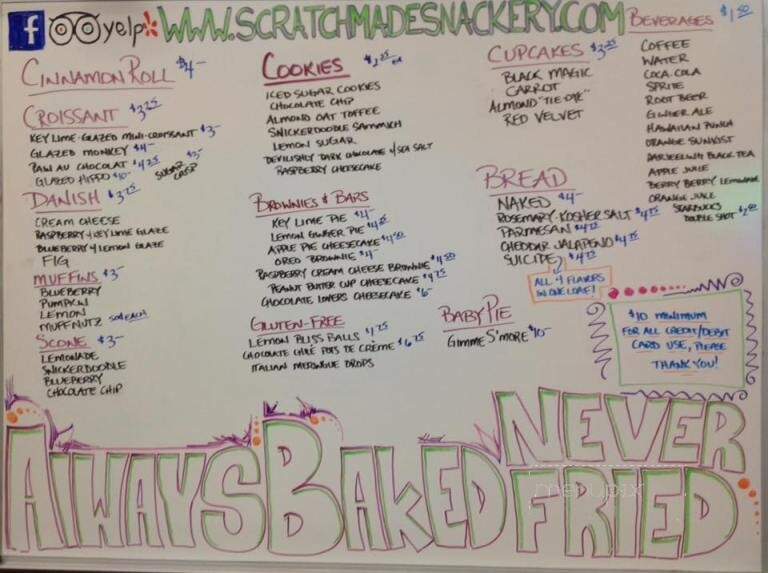 f yelp WWW.SCRATCHMADESNACKERY.COM
CINNAMON ROLL $4-
CROISSANT $3.25
KEY LIME-GLAZED MINI-CROISSANT $3-
GLAZED MONKEY $4-
PAIN AU CHOCOLAT $4.25
GLAZED HIPPO $10-
SUGAR CRISP $3-
DANISH $3.75
CREAM CHEESE
RASPBERRY + KEY LIME GLAZE
BLUEBERRY + LEMON GLAZE
FIG
MUFFINS $3-
BLUEBERRY
PUMPKIN
LEMON
MUFFNUTZ 50¢ EACH
SCONE $3-
LEMONADE
SNICKERDOODLE
BLUEBERRY
CHOCOLATE CHIP
COOKIES
ICED SUGAR COOKIES
CHOCOLATE CHIP
ALMOND OAT TOFFEE
SNICKERDOODLE SAMMICH
LEMON SUGAR
DEVILISHLY DARK CHOCOLATE w/ SEA SALT
RASPBERRY CHEESECAKE
BROWNIES & BARS
KEY LIME PIE $4-
LEMON GINGER PIE
APPLE PIE CHEESECAKE
OREO BROWNIE $4-
RASPBERRY CREAM CHEESE BROWNIE
PEANUT BUTTER CUP CHEESECAKE
CHOCOLATE LOVERS CHEESECAKE $6-
GLUTEN-FREE
LEMON BLISS BALLS
CHOCOLATE CHILE POTS DE CRÈME
ITALIAN MERINGUE DROPS
CUPCAKES
BLACK MAGIC
CARROT
ALMOND "TIE-DYE"
RED VELVET
BREAD
NAKED $4-
ROSEMARY-KOSHER SALT
PARMESAN
CHEDDAR JALAPENO
SUICIDE
ALL 4 FLAVORS
IN ONE LOAF!
BABY PIE
GIMME S'MORE $10-
BEVERAGES $1.50
COFFEE
WATER
COCA-COLA
SPRITE
ROOT BEER
GINGER ALE
HAWAIIAN PUNCH
ORANGE SUNKIST
DARJEELING BLACK TEA
APPLE JUICE
BERRY BERRY LEMONADE
ORANGE JUICE
STARBUCKS
DOUBLE SHOT
$10 MINIMUM
FOR ALL CREDIT/DEBIT
CARD USE, PLEASE
THANK YOU!
ALWAYS BAKED NEVER
FRIED
menupix